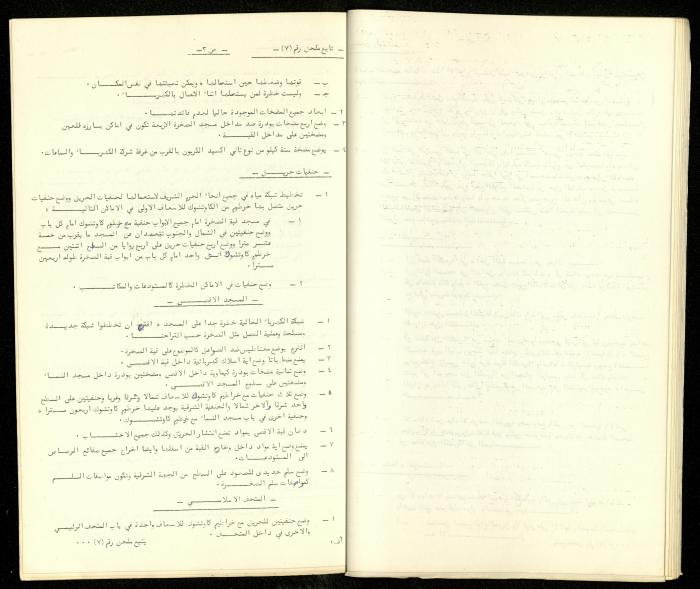 ـ تابع ملحق رقم (٧) ـ ـ ص ٣ـ
ب ـ قوتها وضغطها حين استعمالها ويمكن تعبئتها في نفس المكـــان .
جـ ـ وليست خطرة لمن يستعملها اثناء الاتصال بالكهربـــاء .
٢ ـ ابعاد جميع المضخات الموجودة حاليا لعدم فائدتهـــا .
٣ ـ وضع اربع مضخات بودرة ضد مداخل مسجد الصخرة الاربعة تكون في اماكن بارزه للعين
ومضختين على مداخل القبـــة .
٤ ـ يوضع مضخة ستة كيلو من نوع ثاني اكسيد الكربون بالقرب من غرفة شركة الكهربـــاء والساعات.
ـ حنفيات حريـــق ـ
١ ـ تخطيط شبكة مياه في جميع انحاء الحرم الشريف لاستعمالها لحنفيات الحريق ووضع حنفيات
حريق متصل بها خراطيم من الكاوتشوك للاسعاف الاولي في الاماكن التاليـــة :
١ ـ في مسجد قبة الصخرة امام جميع الابواب حنفية مع خرطوم كاوتشوك امام كل باب
ووضع حنفيتين في الشمال والجنوب تبتعدان عن المسجد ما يقرب من خمسة
عشر مترا ووضع اربع حنفيات حريق على اربع زوايا من السطح اثنتين مـــع
خرطوم كاوتشوك واحد امام كل باب من ابواب قبة الصخرة طوله اربعين
متـــرا.
٢ ـ وضع حنفيات في الاماكن الخطرة كالمستودعات والمكاتـــب .
ـ المسجد الاقصـــى ـ
١ ـ شبكة الكهرباء الحالية خطرة جدا على المسجد ، اقترح ان تخططوا شبكة جديـــدة
مسلحة وعملية الفصل مثل الصخرة حسب اقتراحنـــا .
٢ ـ اقترح بوضع مغناطيس ضد الصواعق كالموضوع على قبة الصخرة.
٣ ـ يمنع منعا باتا وضع اية اسلاك كهربائية داخل قبة الاقصـــى .
٤ ـ وضع ثمانية مضخات بودرة كيماوية داخل الاقصى ومضختين بودرة داخل مسجد النساء
ومضختين على سطوح المسجد الاقصـــى .
٥ ـ وضع ثلاث حنفيات مع خراطيم كاوتشوك للاسعاف شمالا وشرقا وغربا وحنفيتين على السطح
واحد شرقا والاخر شمالا والحنفية الشرقية يوجد عليها خرطوم كاوتشوك اربعون متـــرا ،
وحنفية اخرى في باب مسجد النساء مع خرطوم كاوتشـــوك.
٦ ـ دهان قبة الاقصى بمواد تمنع انتشار الحريق وكذلك جميع الاخشـــاب .
٧ ـ يمنع وضع اية مواد داخل وخارج القبة من اسفلها وايضا اخراج جميع صفائح الرصـــاص
الى المستودعـــات.
٨ ـ وضع سلم حديدي للصعود على السطح من الجهة الشرقية وتكون مواصفات السلـــم
كمواصفات سلم الصخـــرة.
ـ المتحف الاسلامـــي ـ
١ ـ وضع حنفيتين للحريق مع خراطيم كاوتشوك للاسعاف واحدة في باب المتحف الرئيسـي
والاخرى في داخل المتحـــف .
يتبع ملحق رقم (٧) ٠٠٠